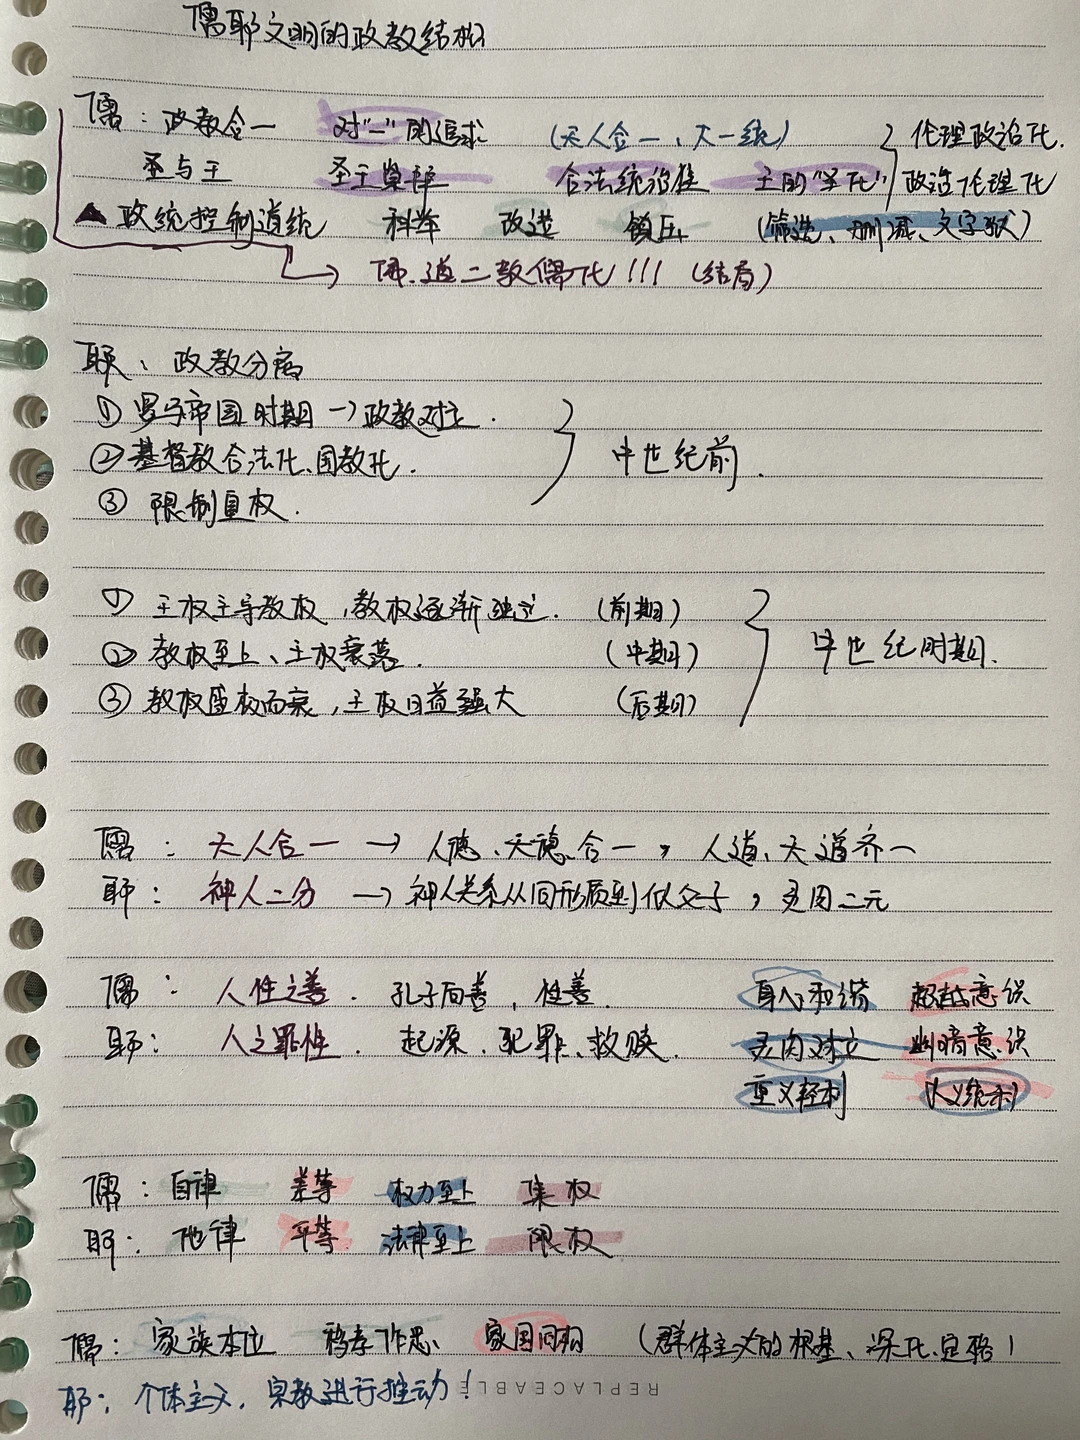 儒耶文明的政教结构
儒：政教合一 对“一”的追求 (天人合一、大一统) 伦理政治化.
圣与王 圣王崇拜 合法统治性 王的“圣化” 政治伦理化
▲政统控制道统 科举 改造 镇压 (筛选、删减、文字狱)
→ 佛.道二教儒化!!! (结局)
耶、政教分离
① 罗马帝国时期→政教对立.
② 基督教合法化、国教化. 中世纪前.
③ 限制皇权.
① 王权主导教权,教权逐渐独立. (前期)
② 教权至上、王权衰落. (中期) 中世纪时期.
③ 教权盛极而衰,王权日益强大 (后期)
儒：天人合一 → 人德、天德、合一，人道、天道齐一
耶：神人二分 → 神人关系从同形质到似父子，灵肉二元
儒：人性之善. 孔子向善，性善. 身心和谐 超越意识
耶：人之罪性. 起源、犯罪、救赎. 灵肉对立 幽暗意识
重义轻利 以义统利
儒：自律 差等 权力至上 集权
耶：他律 平等 法律至上 限权
儒：家族本位 移孝作忠 家国同构 (群体主义的根基、深化、定格)
耶：个体主义、宗教进行推动!
REPLACEABLE